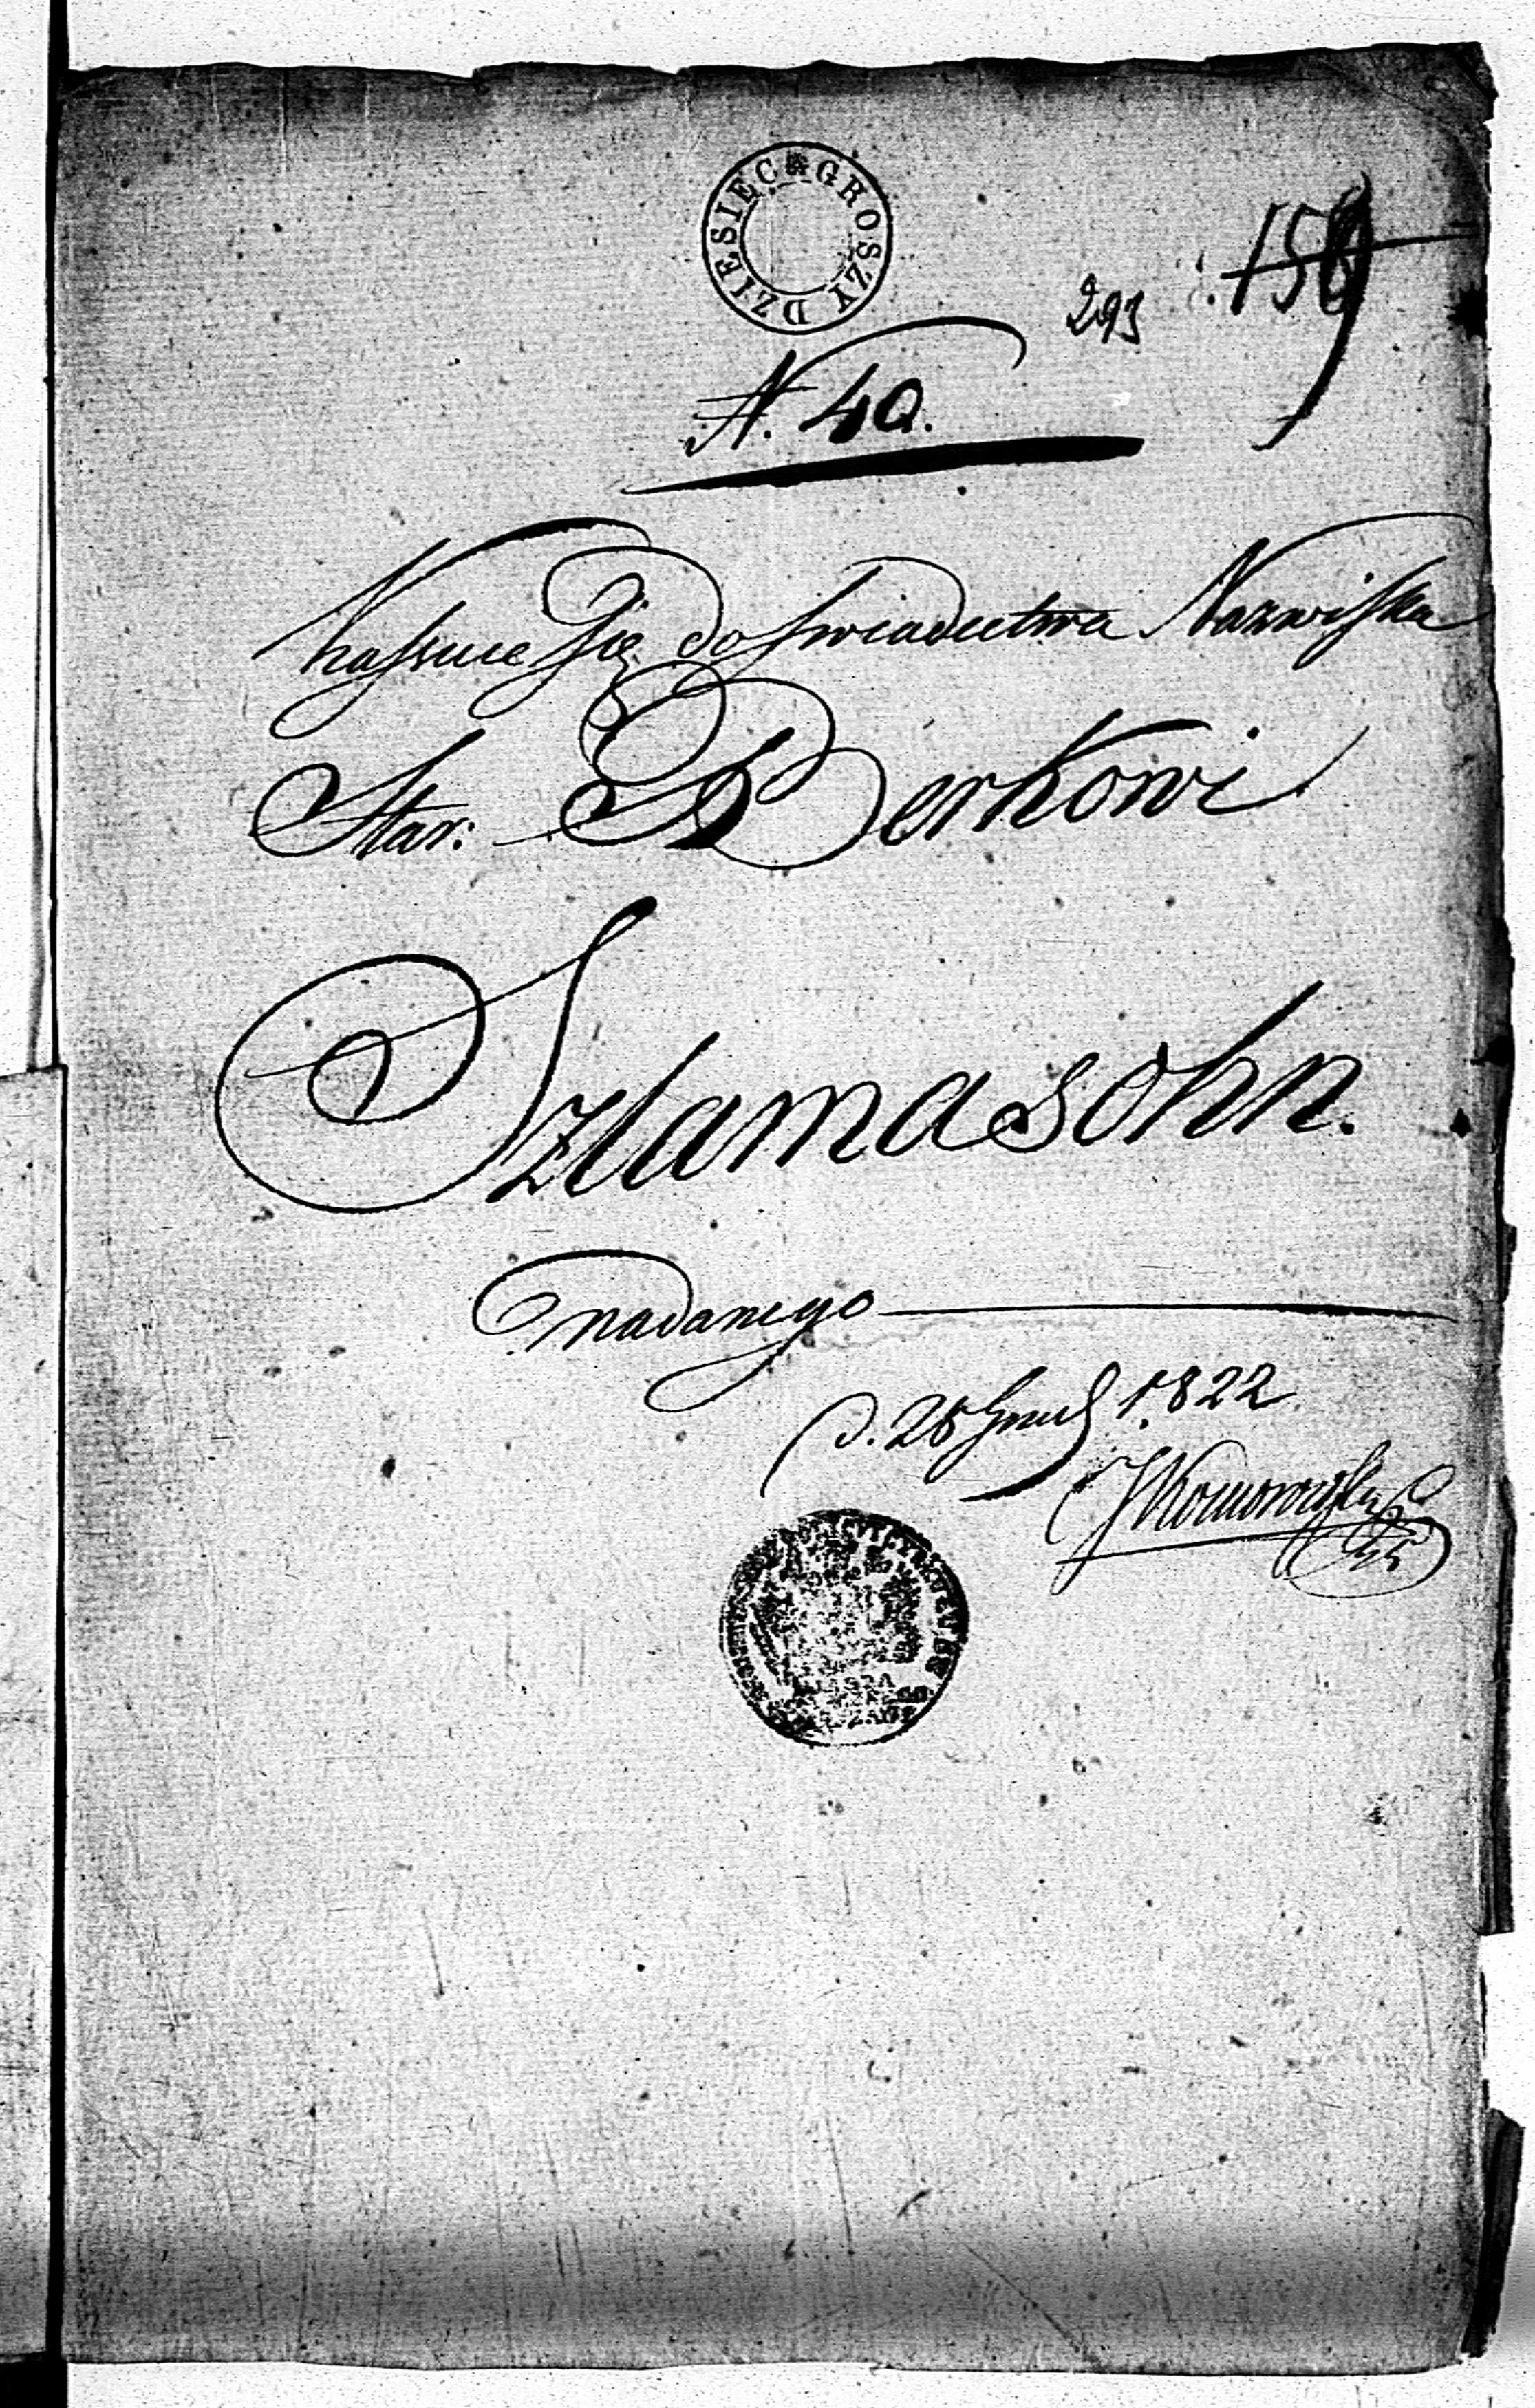 DZIESIĘC GROSZY
293
159
N. 40.
Kassuie się do świadectwa Nazwiska
Star: Berkowi
Szlamasohn.
nadanego
d. 28 Grud 1822